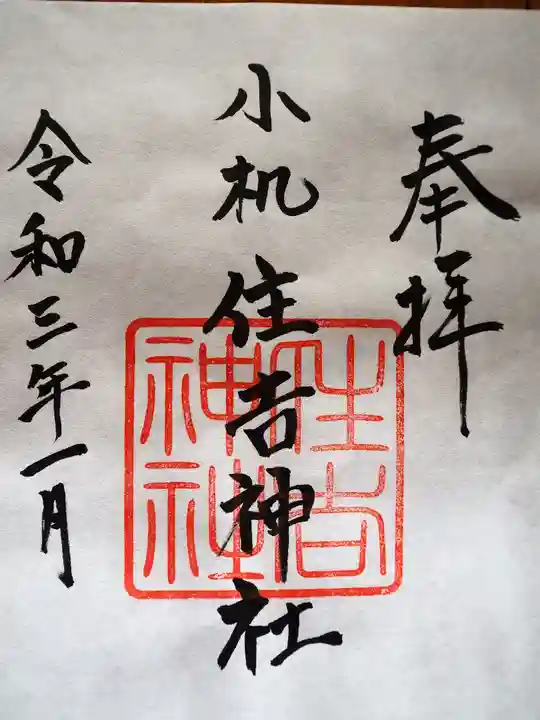 奉拝
小机住吉神社
令和三年一月
住吉
神社